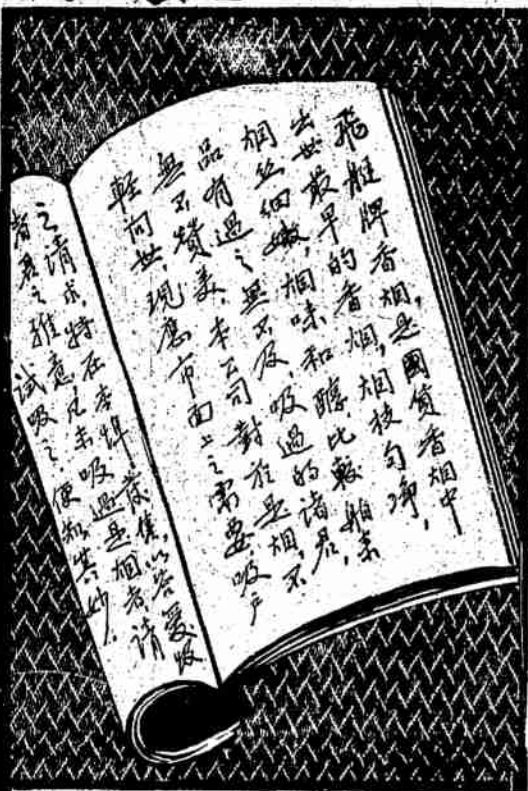 飛艇牌香烟,是國貨香烟中
出世最早的香烟,烟枝勻淨,
烟丝細嫩,烟味和醇,比較舶來
品有過之無不及,吸過的諸君,
無不贊美,本公司對於是烟,不
輕问世,現應市面上之需要,吸户
之请求,特在李焊
者君之雅意,凡未吸過是烟者,请
試吸之,便知其妙.